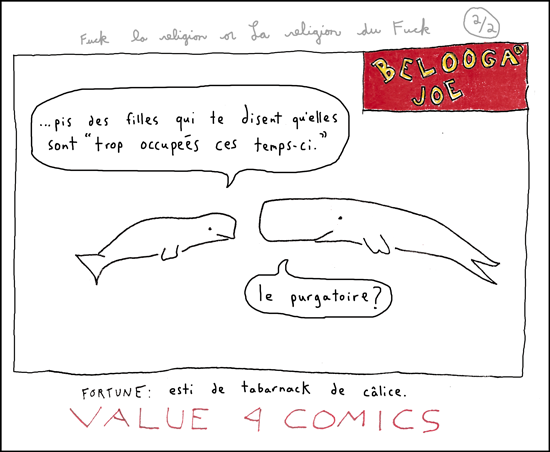 Fuck la religion or La religion du Fuck
2/2
BELOOGA
JOE
...pis des filles qui te disent qu'elles
sont "trop occupées ces temps-ci."
le purgatoire?
FORTUNE: esti de tabarnack de câlice.
VALUE 4 COMICS